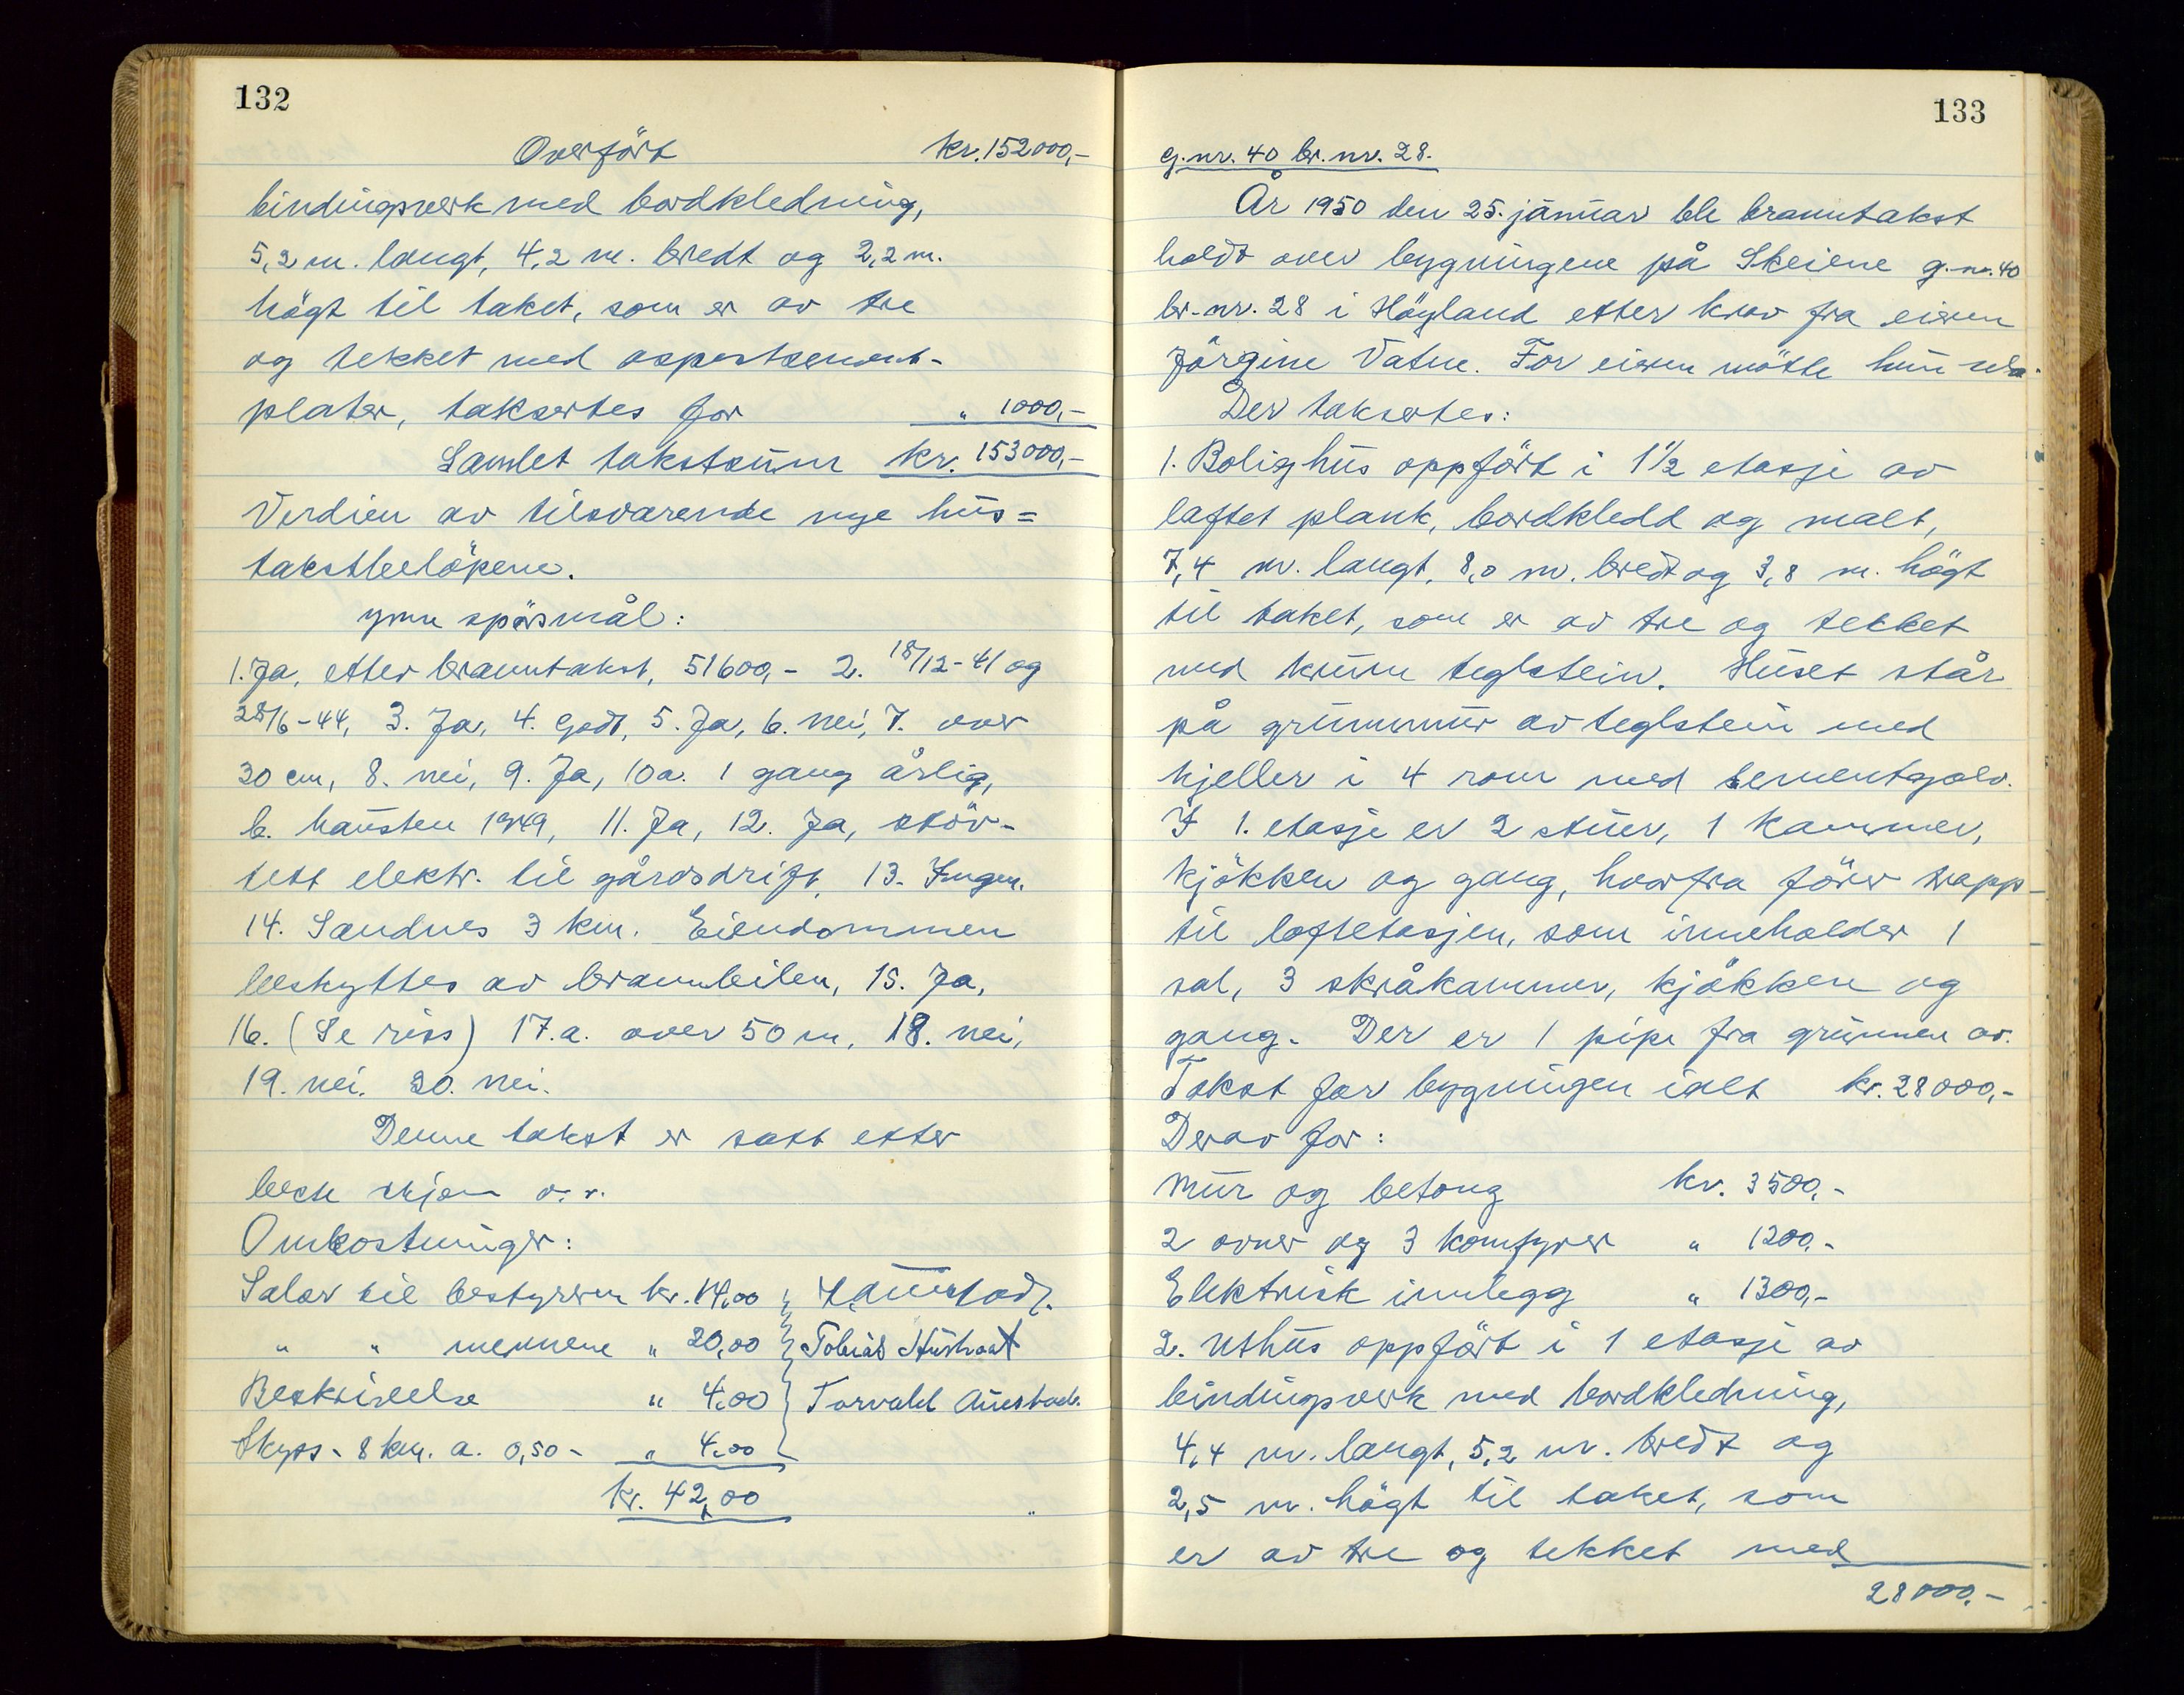 132
Overfört kr. 152000,-
bindingsverk med bordkledning,
5,2 m. langt, 4,2 m. bredt og 2,2 m.
högt til taket, som er av tre
og tekket med aspestsement-
plater, taksertes for " 1000,-
Samlet takstsum kr. 153000,-
Verdien av tilsvarende nye hus =
takstbelöpene.
ymse spörsmål:
1. Ja, etter branntakst, 51600,- 2. 18/12-41 og
28/6-44, 3. Ja, 4. Godt, 5. Ja, 6. nei, 7. over
30 cm, 8. nei, 9. Ja, 10a. 1 gang årlig,
b. hausten 1949, 11. Ja, 12. Ja, stöv-
tett elektr. til gårdsdrift, 13. Ingen.
14. Sandnes 3 km. Eiendommen
beskyttes av brannbilen, 15. Ja,
16. (Se riss) 17.a. over 50 m, 18. nei,
19. nei. 20. nei.
Denne takst er satt etter
beste skjøn o. s.
Omkostninger:
Salær til bestyreren kr. 14,00
" " mennene " 20,00 Tobias Husbaat
Beskrivelse " 4,00 Torvald Austad
Skyss - 8 km. a. 0,50 - " 4,00
kr. 42,00
133
g.nr. 40 br.nr. 28.
År 1950 den 25. januar ble branntakst
holdt over bygningene på Skeiene g.nr. 40
br.nr. 28 i Höyland etter krav fra eieren
Jörgine Vatne. For eieren mötte hun selv.
Der taksertes:
1. Bolighus oppfört i 1 1/2 etasje av
laftet plank, bordkledd og malt,
7,4 m. langt, 8,0 m. bredt og 3,8 m. högt
til taket, som er av tre og tekket
med krum teglstein. Huset står
på grunnmur av teglstein med
kjeller i 4 rom med sementgolv.
I 1. etasje er 2 stuer, 1 kammer,
kjökken og gang, hvorfra förer trapp
til loftetasjen, som inneholder 1
sal, 3 skråkammer, kjökken og
gang. Der er 1 pipe fra grunnen av.
Takst for bygningen ialt kr. 28000,-
Derav for:
mur og betong kr. 3500,-
2 ovner og 3 komfyrer " 1200,-
Elektrisk innlegg " 1300,-
2. Uthus oppfört i 1 etasje av
bindingsverk med bordkledning,
4,4 m. langt, 5,2 m. bredt og
2,5 m. högt til taket, som
er av tre og tekket med
28000,-